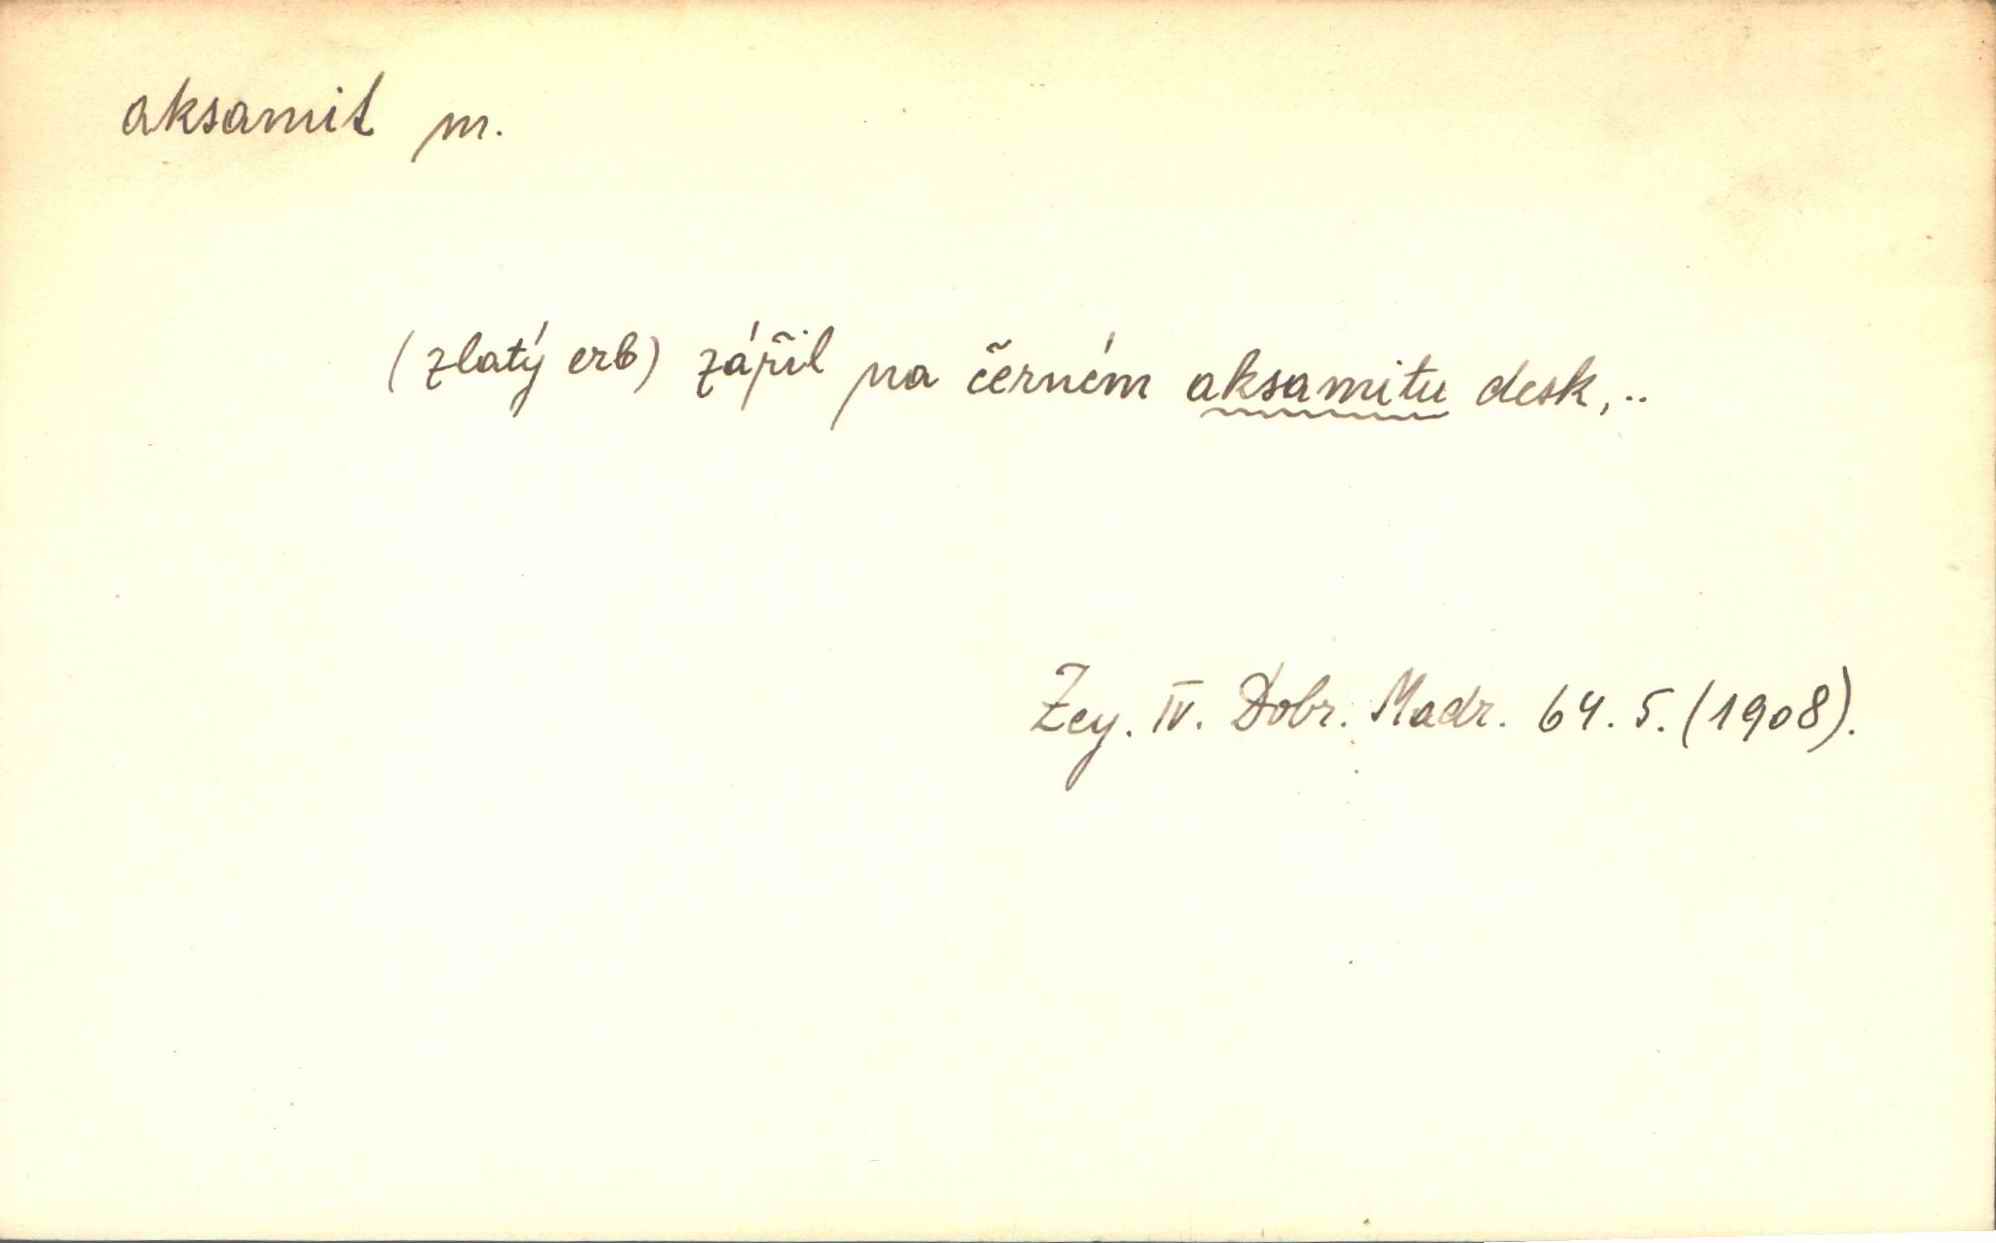 aksamit m.
(zlatý erb) zářil na černém aksamitu desk,..
Zey. IV. Dobr. Madr. 64. 5. (1908).